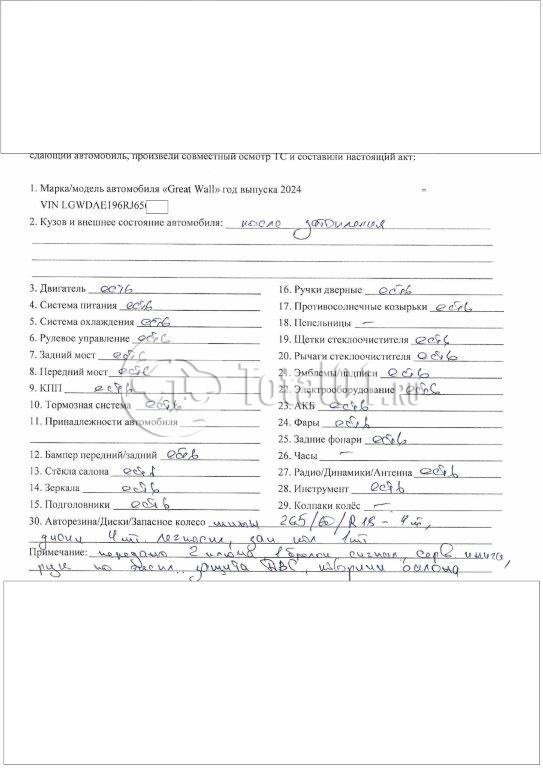 сдающий автомобиль, произвели совместный осмотр ТС и составили настоящий акт:
1. Марка/модель автомобиля «Great Wall» год выпуска 2024 =
VIN LGWDAE196RJ65
2. Кузов и внешнее состояние автомобиля: после затопления
3. Двигатель есть
4. Система питания есть
5. Система охлаждения есть
6. Рулевое управление есть
7. Задний мост есть
8. Передний мост есть
9. КПП есть
10. Тормозная система есть
11. Принадлежности автомобиля —
12. Бампер передний/задний есть
13. Стёкла салона есть
14. Зеркала есть
15. Подголовники есть
16. Ручки дверные есть
17. Противосолнечные козырьки есть
18. Пепельницы —
19. Щетки стеклоочистителя есть
20. Рычаги стеклоочистителя есть
21. Эмблемы/надписи есть
22. Электрооборудование есть
23. АКБ есть
24. Фары есть
25. Задние фонари есть
26. Часы —
27. Радио/Динамики/Антенна есть
28. Инструмент есть
29. Колпаки колёс —
30. Авторезина/Диски/Запасное колесо шины 265/60/R18 - 4 шт,
диски 4 шт. зап кол 1 шт
Примечание: передано 2 ключа 1 брелок сигнал, серв книга,
рук по защита ДВС, коврики
Total01.ru